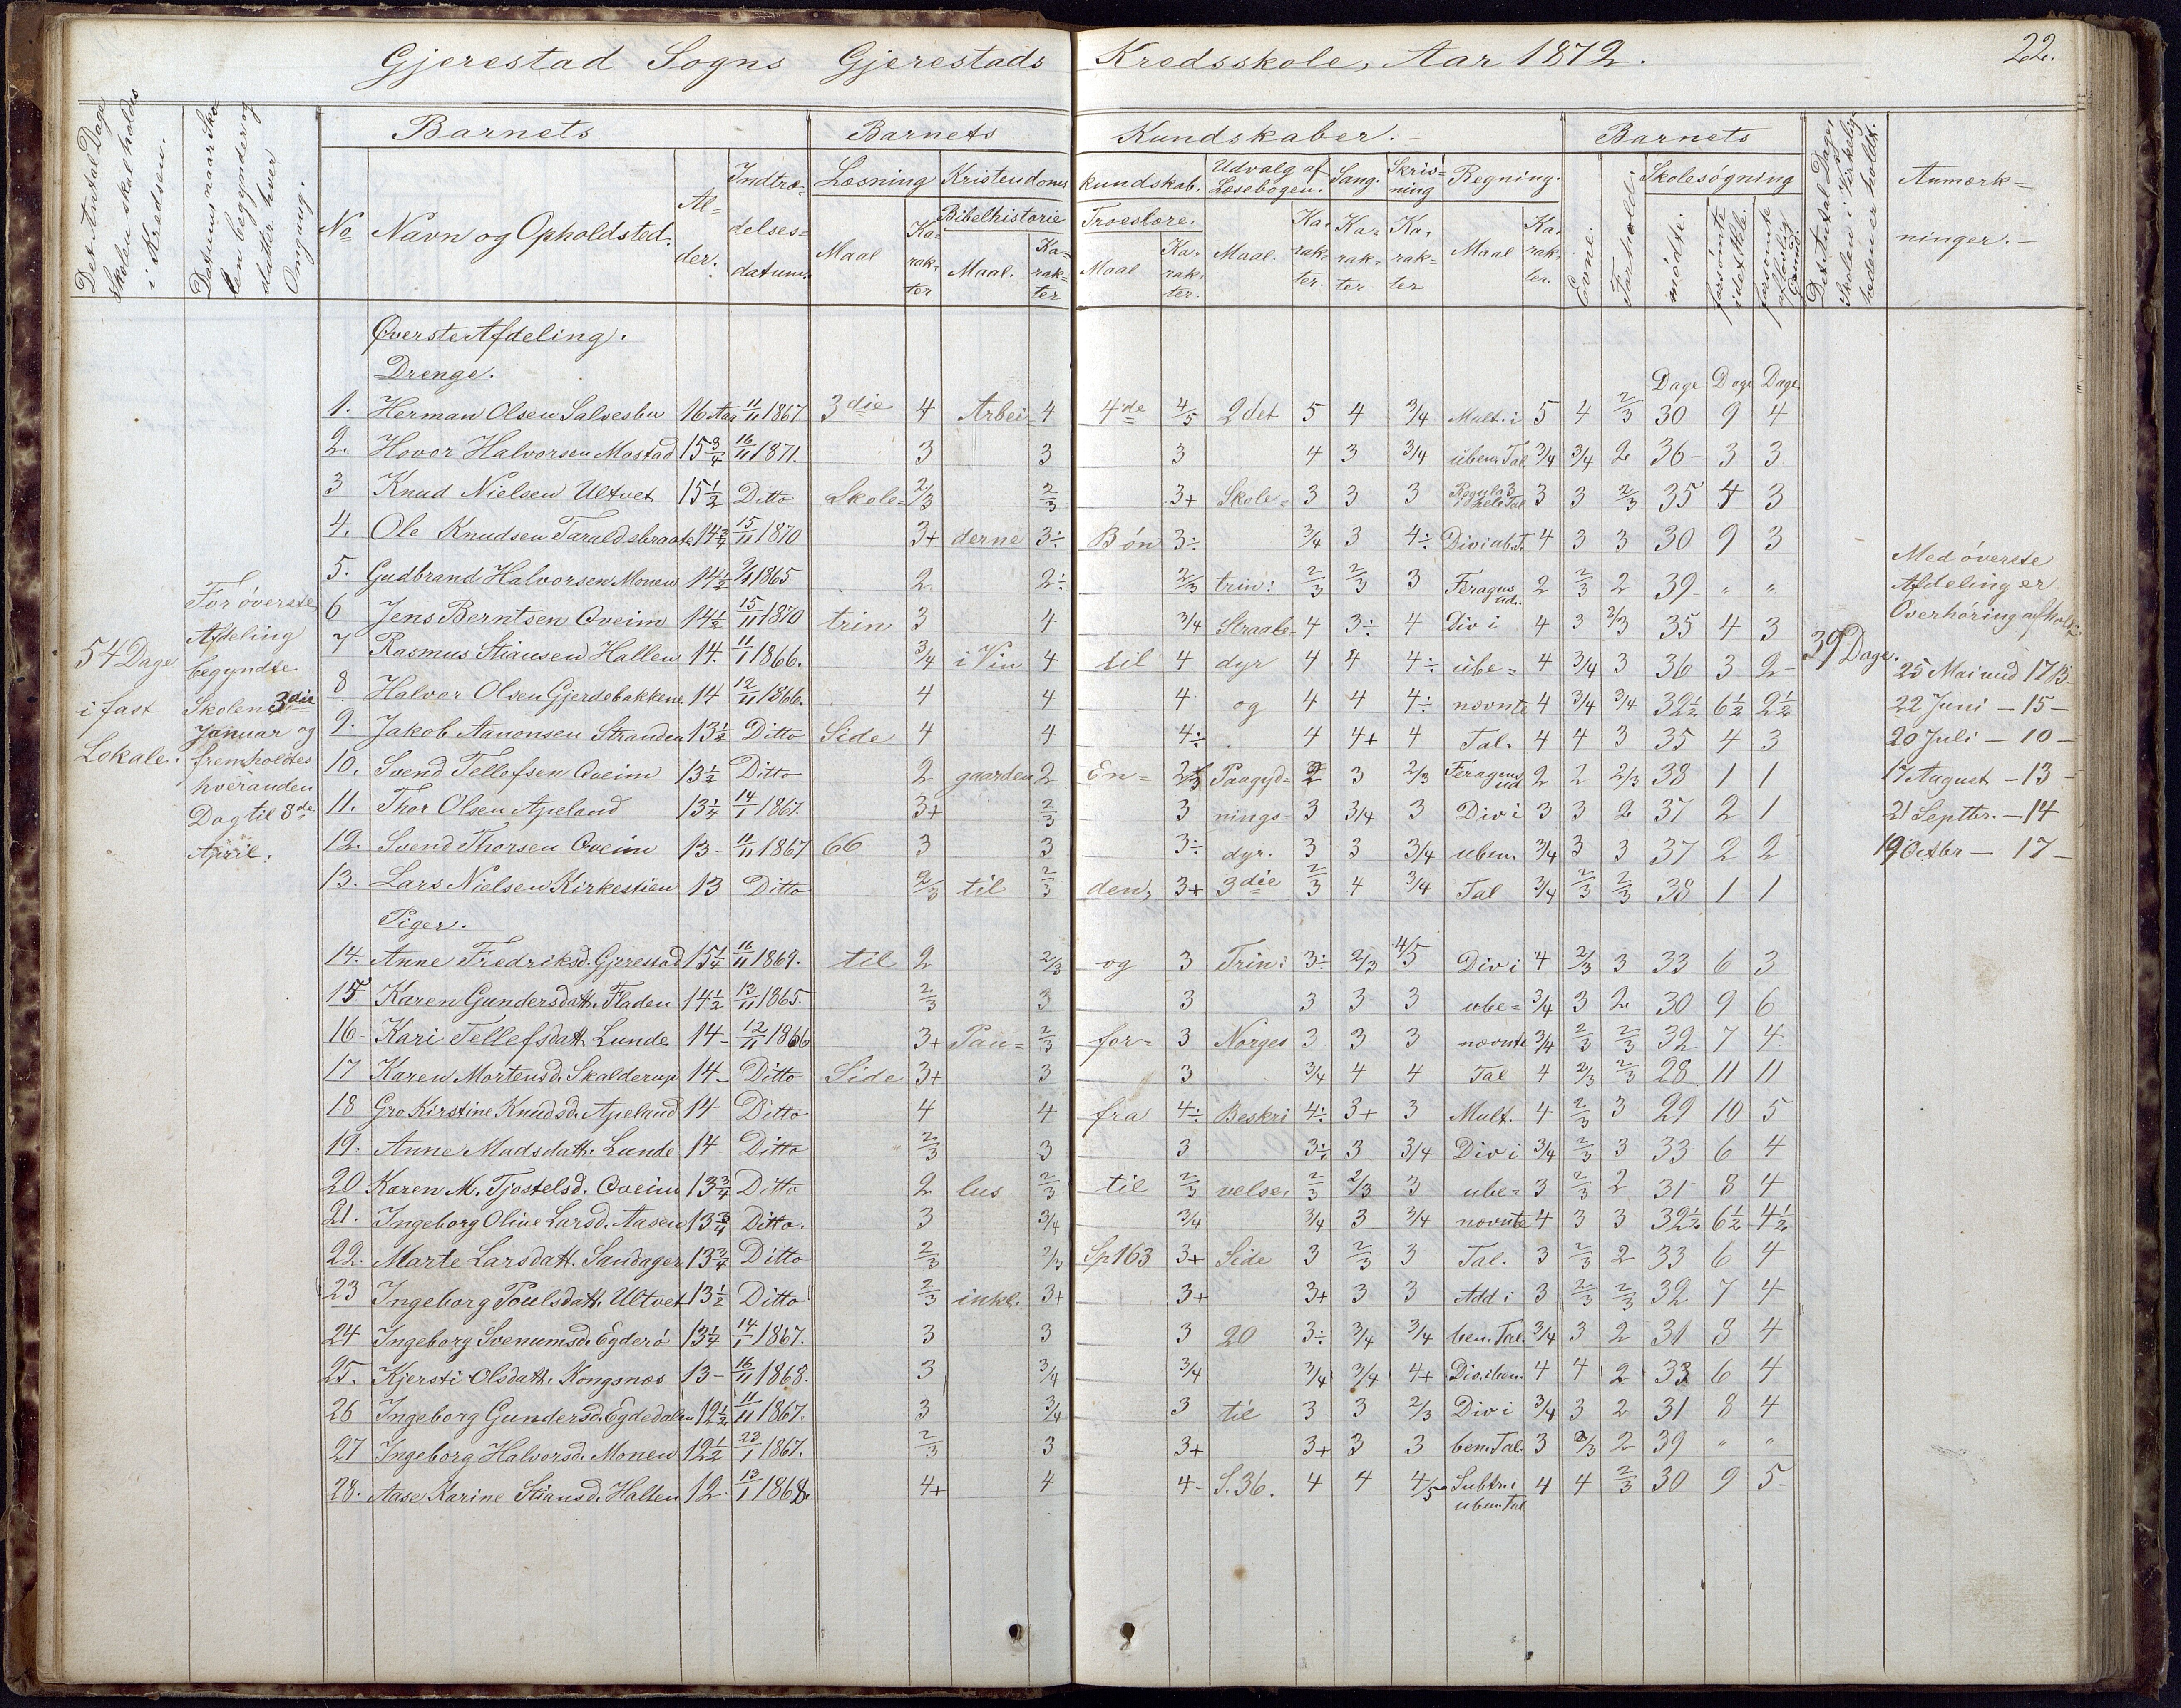 Gjerestad Sogns Gjerestads Kredsskole, Aar 1872. 22.
Det Antal Dage Skolen skal holdes i Kredsen.
Datum naar Skolen begynder og slutter hver Omgang.
Barnets Barnets Kundskaber. Barnets
No Navn og Opholdsted. Alder. Indtrædelsesdatum. Læsning Maal Karakter Kristendoms Bibelhistorie Maal. Karakter
kundskab. Troeslære. Maal Karakter. Udvalg af Læsebogen. Maal. Karakter. Sang. Karakter Skrivning Karakter Regning. Maal Karakter. Evne. Forhold. Skolesøgning mødte. forsømte idethele. forsømte af lovlig Grund.
Det Antal Dage Skolen i Virkeligheden er holdt.
Anmærkninger.
54 Dage i fast Lokale.
For øverste Afdeling begyndte Skolen 3die Januar og fremholdtes hveranden Dag til 8de April.
Øverste Afdeling.
Drenge. Dage Dage Dage
1. Herman Olsen Salvesbu 16 Aar 11/11 1867. 3die 4 Arbei- 4 4de 4/5 2det 5 4 3/4 Mult. i 5 4 2/3 30 9 4
2. Hovor Halvorsen Mostad 15 3/4 16/11 1871. 3 3 3 4 3 3/4 uben. Tal 3/4 3/4 2 36 3 3
3 Knud Nielsen Ultvet 15 1/2 Ditto Skole= 2/3 2/3 3+ Skole= 3 3 3 Regula 3 i hele Tal 3 3 2/3 35 4 3
4. Ole Knudsen Taraldsbraate 14 3/4 15/11 1870 3+ derne 3÷ Bøn 3÷ 3/4 3 4÷ Divi ub.T. 4 3 3 30 9 3
5. Gudbrand Halvorsen Monen 14 1/2 9/11 1865 2 2÷ 2/3 trin: 2/3 2/3 3 Feragus ud. 2 2/3 2 39 " "
6 Jens Berntsen Qveim 14 1/2 15/11 1870 trin 3 4 3/4 Straale- 4 3÷ 4 Div i 4 3 2/3 35 4 3
7 Rasmus Stiansen Hallen 14. 11/1 1866. 3/4 i Vin 4 til 4 dyr 4 4 4÷ ube= 4 3/4 3 36 3 2
8 Halvor Olsen Gjerdebakkene 14 12/11 1866. 4 4 4 og 4 4 4÷ nævnte 4 3/4 3/4 32 1/2 6 1/2 2 1/2
9. Jakob Aanonsen Stranden 13 1/2 Ditto Side 4 4 4÷ 4 4+ 4 Tal. 4 4 3 35 4 3
10. Svend Tellefsen Qveim 13 1/2 Ditto 2 gaarden 2 En= 2/3 Paagyd= 2 3 2/3 Feragus ud 2 2 2/3 38 1 1
11. Thor Olsen Apeland 13 1/4 14/1 1867. 3+ 2/3 3 nings= 3 3/4 3 Div i 3 3 2 37 2 1
12. Svend Thorsen Qveim 13 11/11 1867 66 3 3 3÷ dyr. 3 3 3/4 uben. 3/4 3 3 37 2 2
13. Lars Nielsen Kirkestien 13 Ditto 2/3 til 2/3 den, 3+ 3die 2/3 4 3/4 Tal 3/4 2/3 2/3 38 1 1
Piger.
14. Anne Fredriksd. Gjerestad 15 1/4 16/11 1869. til 2 2/3 og 3 Trin: 3÷ 2/3 4/5 Div i 4 2/3 3 33 6 3
15. Karen Gundersdatt. Fladen 14 1/2 13/11 1865. 2/3 3 3 3 3 3 ube= 3/4 3 2 30 9 6
16 Kari Tellefsdatt. Lunde 14 12/11 1866 3+ Pau= 2/3 for= 3 Norges 3 3 3 nævnte 3/4 2/3 2/3 32 7 4
17 Karen Mortensd. Skalderup 14 Ditto Side 3+ 3 3 3/4 4 4 Tal 4 2/3 2/3 28 11 11
18 Gro Kirstine Knudsd. Apeland 14 Ditto 4 4 fra 4÷ Beskri 4÷ 3+ 3 Mult. 4 2/3 3 29 10 5
19. Anne Madsdatt. Lunde 14 Ditto 2/3 3 3 3÷ 3 3/4 Div i 3/4 2/3 3 33 6 4
20 Karen M. Tjostelsd. Qveim 13 3/4 Ditto 2 lus 2/3 til 2/3 velse, 2/3 2/3 3 ube= 3 2/3 2 31 8 4
21. Ingeborg Oline Larsd. Aasen 13 3/4 Ditto. 3 3/4 3/4 3/4 3 3/4 nævnte 4 3 3 32 1/2 6 1/2 4 1/2
22. Marte Larsdatt. Sandager 13 3/4 Ditto 2/3 2/3 Sp 163 3+ Side 3 2/3 3 Tal. 3 2/3 2 33 6 4
23 Ingeborg Poulsdatt. Ultvet 13 1/2 Ditto 2/3 inkl. 3+ 3+ 3+ 3 3 Add i 3 2/3 2/3 32 7 4
24 Ingeborg Svenumsd. Egderø 13 1/4 14/1 1867. 3 3 3 20 3÷ 3/4 3/4 ben. Tal. 3/4 3 2 31 8 4
25. Kjersti Olsdatt. Kongsnæs 13 16/11 1868. 3 3/4 3/4 3/4 3/4 4+ Div. i ben. 4 4 2 33 6 4
26 Ingeborg Gundersd. Egdedalen 12 1/2 11/11 1867. 3 3/4 3 til 3 3 2/3 Div i 3/4 3 2 31 8 4
27 Ingeborg Halvorsd. Monen 12 1/2 23/1 1867. 2/3 3 3+ 3+ 3 3 ben. Tal. 3 2/3 2 39 " "
28. Aase Karine Stiansd. Hallen 12. 13/1 1868. 4+ 4 4 S. 36. 4 4 4/5 Subtr. i uben. Tal 4 4 2/3 30 9 5
39 Dage.
Med øverste
Afdeling er
Overhøring afholdt
25 Mai med 17 B.
22 Juni – 15 –
20 Juli – 10 –
17 August – 13 –
21 Septbr. – 14
19 Octbr – 17 –